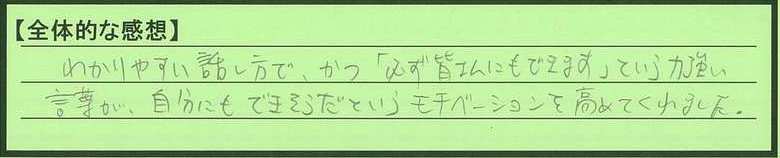 【全体的な感想】
わかりやすい話し方で、かつ「必ず皆さんにもできます」という力強い
言葉が、自分にもできそうだというモチベーションを高めてくれました。